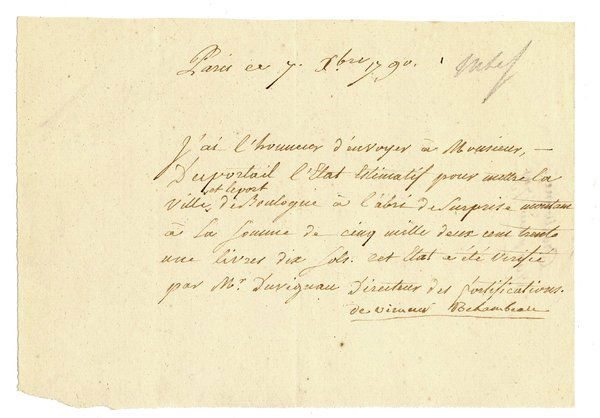 Paris ce 7. Xbre 1790.
J'ai l'honneur d'envoyer à Monsieur,
Duportail l'Etat Estimatif pour mettre la
et le port
Ville, de Boulogne à l'abri de Surprise montant
à la Somme de cinq mille deux cent trente
une livres dix sols. cet Etat a été verifié
par Mr. Duvignau Directeur des fortifications.
de vimeur Rochambeau